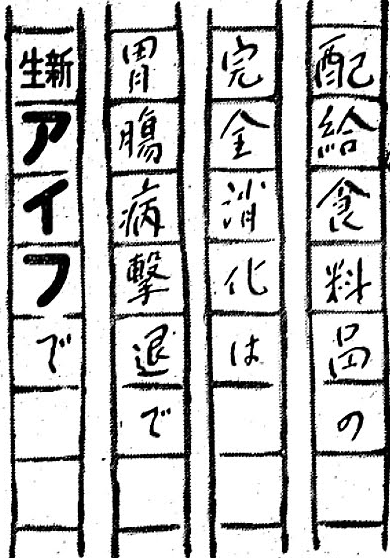 配給食料品の
完全消化は
胃腸病撃退で
新生アイフで